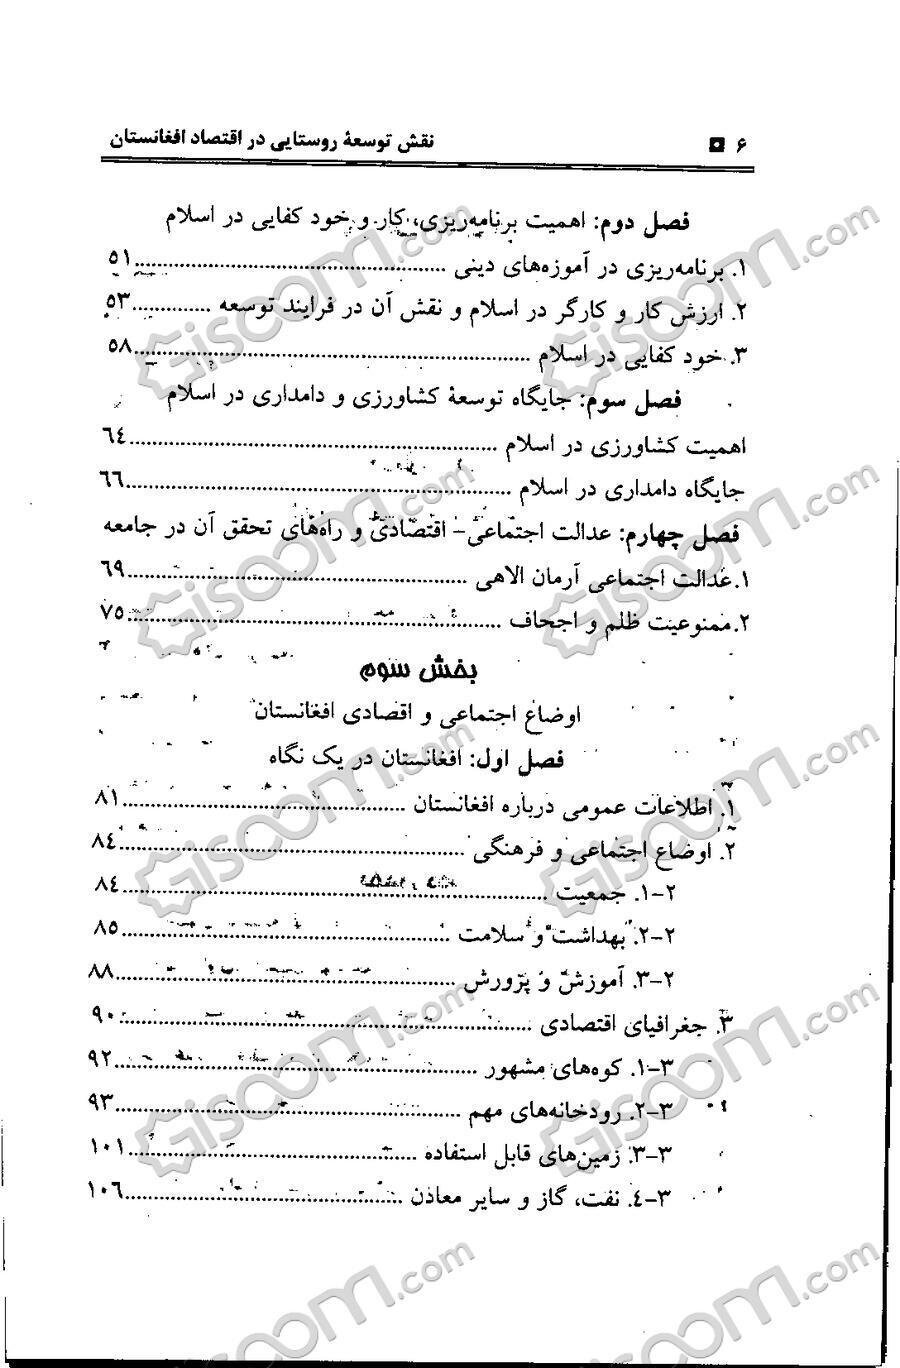 ۶ نقش توسعۀ روستایی در اقتصاد افغانستان
فصل دوم: اهمیت برنامه‌ریزی، کار و خود کفایی در اسلام
۱. برنامه‌ریزی در آموزه‌های دینی ........................ ۵۱
۲. ارزش کار و کارگر در اسلام و نقش آن در فرایند توسعه ............. ۵۳
۳. خود کفایی در اسلام ........................ ۵۸
فصل سوم: جایگاه توسعۀ کشاورزی و دامداری در اسلام
اهمیت کشاورزی در اسلام ........................ ٦٤
جایگاه دامداری در اسلام ........................ ٦٦
فصل چهارم: عدالت اجتماعی- اقتصادی و راه‌های تحقق آن در جامعه
۱.عدالت اجتماعی آرمان الاهی ........................ ٦۹
۲.ممنوعیت ظلم و اجحاف ........................ ۷۵
بخش سوم
اوضاع اجتماعی و اقصادی افغانستان
فصل اول: افغانستان در یک نگاه
۱. اطلاعات عمومی درباره افغانستان ........................ ۸۱
۲. اوضاع اجتماعی و فرهنگی ........................ ۸٤
۲-۱. جمعیت ........................ ۸٤
۲-۲. بهداشت و سلامت ........................ ۸۵
۲-۳. آموزش و پرورش ........................ ۸۸
۳. جغرافیای اقتصادی ........................ ۹۰
۳-۱. کوه‌های مشهور ........................ ۹۲
۳-۲. رودخانه‌های مهم ........................ ۹۳
۳-۳. زمین‌های قابل استفاده ........................ ۱۰۱
۳-٤. نفت، گاز و سایر معادن ........................ ۱۰٦
Giscoom.com